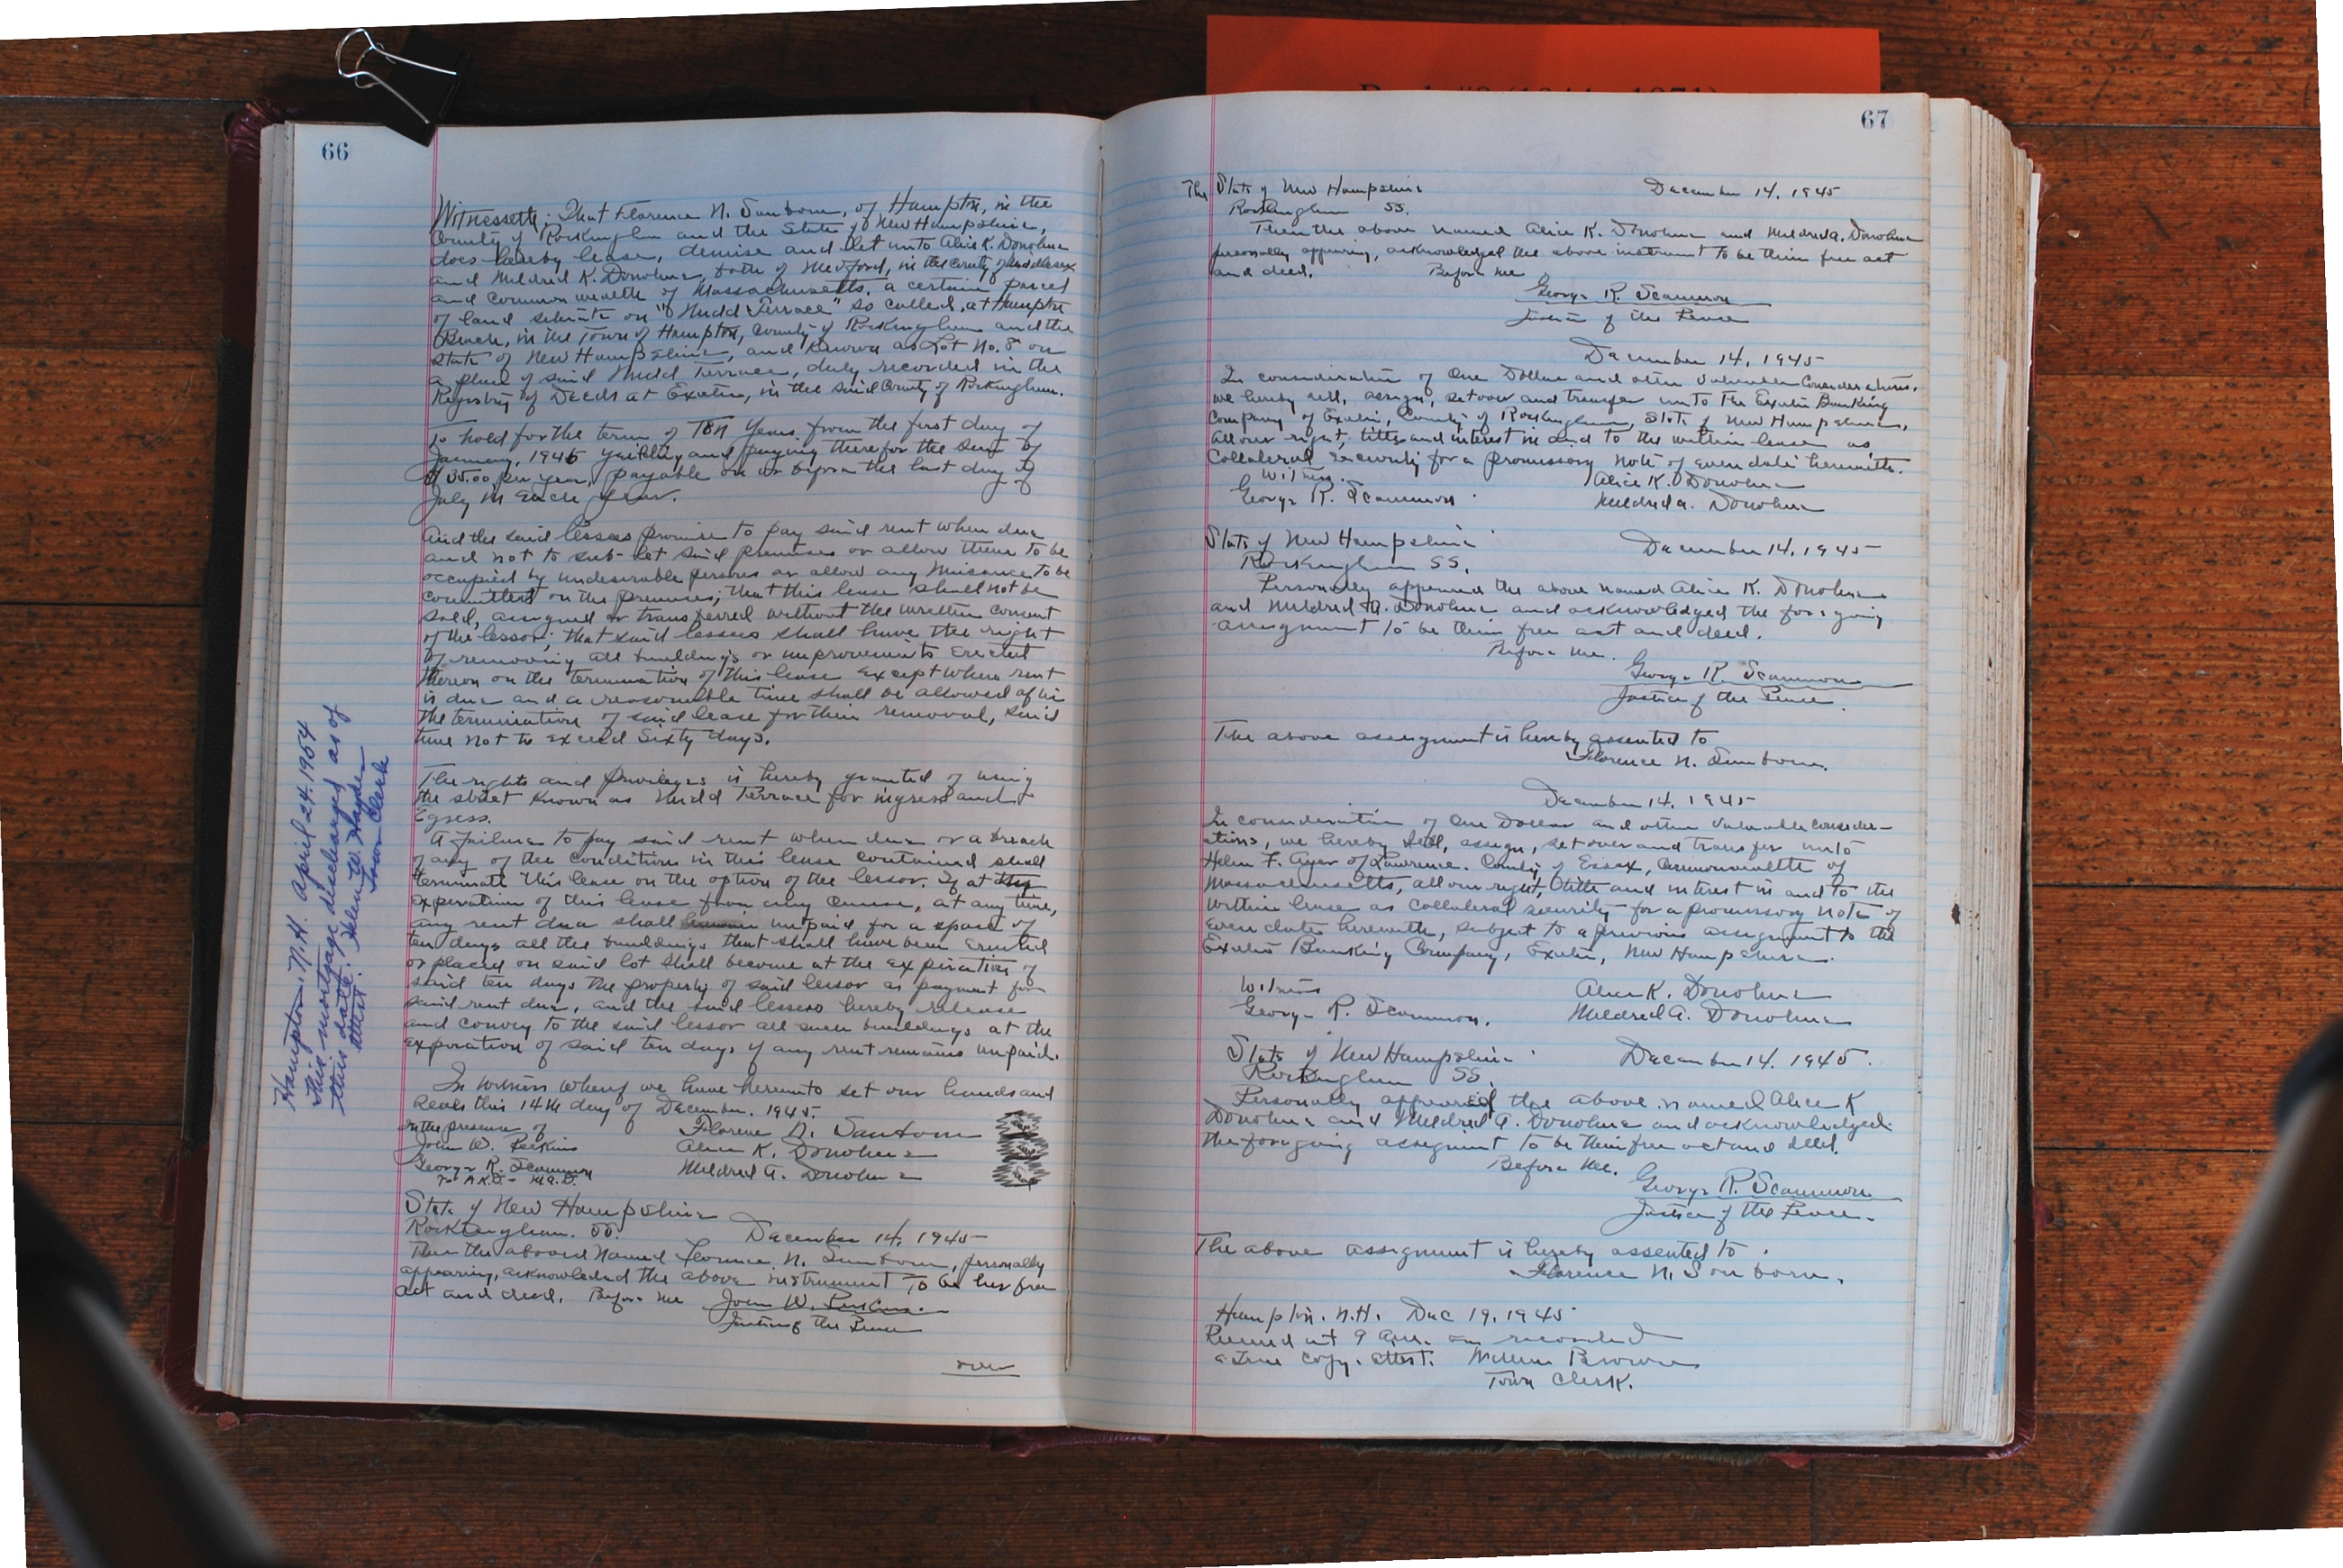 66
Witnesseth; That Florence N. Sanborn, of Hampton, in the
County of Rockingham and the State of New Hampshire,
does hereby lease, demise and let unto Alice K. Donohue
and Mildred K. Donohue, both of Medford, in the County of Middlesex
and Commonwealth of Massachusetts, a certain parcel
of land situate on "Nudd Terrace" so called, at Hampton
Beach, in the Town of Hampton, County of Rockingham and the
State of New Hampshire, and known as Lot No. 8 on
a plan of said Nudd Terrace, duly recorded in the
Registry of Deeds at Exeter, in the said County of Rockingham.
To hold for the term of Ten Years from the first day of
January, 1946 yeilding and paying therefor the sum of
$35.00 per year, payable on or before the last day of
July in each year.
And the said lessees promise to pay said rent when due
and not to sub-let said premises or allow them to be
occupied by undesirable persons or allow any nuisance to be
committed on the premises; that this lease shall not be
sold, assigned or transferred without the written consent
of the lessor; that said lessees shall have the right
of removing all buildings or improvements erected
thereon on the termination of this lease except where rent
is due and a reasonable time shall be allowed after
the termination of said lease for their removal, said
time not to exceed Sixty days.
The rights and privileges is hereby granted of using
the street known as Nudd Terrace for ingress and
Egress.
A failure to pay said rent when due or a breach
of any of the condition in this lease contained shall
terminate this lease on the option of the lessor. If at the
expiration of this lease from any cause, at any time,
any rent due shall unpaid for a space of
ten days all the buildings that shall have been erected
or placed on said lot shall become at the expiration of
said ten days the property of said lessor as payment for
said rent due, and the said lessees hereby release
and convey to the said lessor all such buildings at the
expiration of said ten days if any rent remains unpaid.
In witness whereof we have hereunto set our hands and
seals this 14th day of December. 1945.
In the presence of
John W. Perkins Florence N. Sanborn
George R. Scammon Alice K. Donohue
to A.K.D. - M.A.D. Mildred A. Donohue
State of New Hampshire
Rockingham. SS. December 14, 1945
Then the aboved named Florence N. Sanborn, personally
appearing, acknowledged the above instrument to be her free
act and deed. Before me John W. Perkins.
Justice of the Peace
over
Hampton, N.H. April 24, 1954
This mortgage discharged as of
this date. Helen W. Hayden
attest. Town Clerk
67
The State of New Hampshire December 14, 1945
Rockingham SS.
Then the above named Alice K. Donohue and Mildred A. Donohue
personally appearing, acknowledged the above instrument to be their free act
and deed. Before me
George R. Scammon
Justice of the Peace
December 14, 1945
In consideration of One Dollar and other valuable considerations,
we hereby sell, assign, set over and transfer unto The Exeter Banking
Company of Exeter, County of Rockingham, State of New Hampshire,
all our right, title and interest in and to the within lease as
Collateral security for a promissory note of even date herewith.
Witness. Alice K. Donohue
George R. Scammon. Mildred A. Donohue
State of New Hampshire December 14, 1945
Rockingham SS.
Personally appeared the above named Alice K. Donohue
and Mildred A. Donohue and acknowledged the forgoing
assignment to be their free act and deed.
Before me.
George R. Scammon
Justice of the Peace.
The above assignment is hereby assented to
Florence N. Sanborn.
December 14, 1945
In consideration of One Dollar and other valuable consider-
ations, we hereby sell, assign, set over and transfer unto
Helen F. Ayer of Lawrence. County of Essex, Commonwealth of
Massachusetts, all our right, title and interest in and to the
within lease as collateral security for a promissory note of
even date herewith, subject to a previous assignment to the
Exeter Banking Company, Exeter, New Hampshire.
Witness Alice K. Donohue
George R. Scammon. Mildred A. Donohue
State of New Hampshire December 14, 1945.
Rockingham SS.
Personally appeared the above named Alice K
Donohue and Mildred A. Donohue and acknowledged
the forgoing assignment to be their free act and deed.
Before Me.
George R. Scammon
Justice of the Peace.
The above assignment is hereby assented to.
Florence N. Sanborn.
Hampton. N.H. Dec 19, 1945
Received at 9 A.M. and recorded
a true copy. attest. William Brown
Town Clerk.